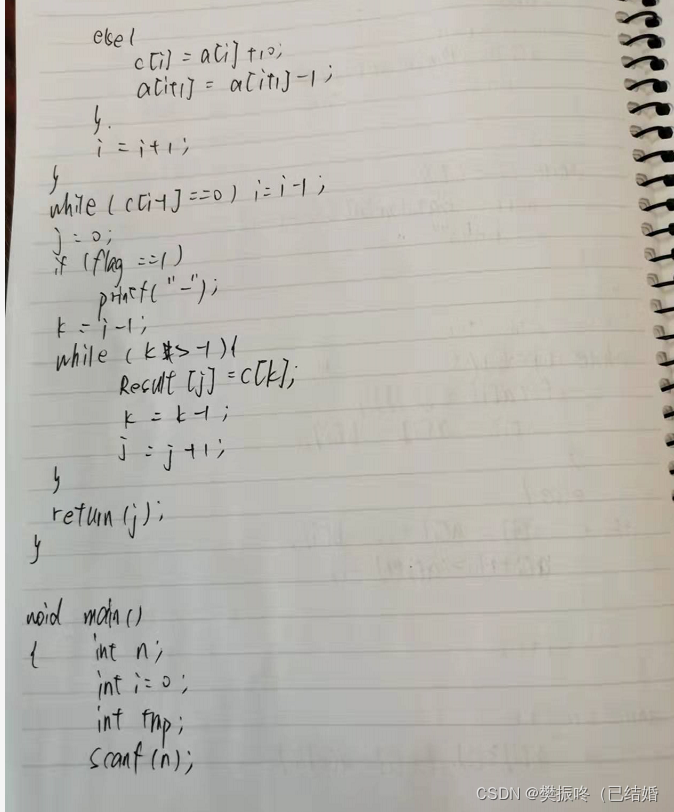 else{
c[i] = a[i]+10;
a[i+1] = a[i+1]-1;
}
i = i+1;
}
while (c[i-1]==0) i=i-1;
j = 0;
if (flag ==1)
printf("-");
k = i-1;
while (k > -1){
Result [j] = c[k];
k = k-1;
j = j+1;
}
return(j);
}
void main()
{ int n;
int i=0;
int tmp;
scanf(n);
CSDN @樊振咚（已结婚